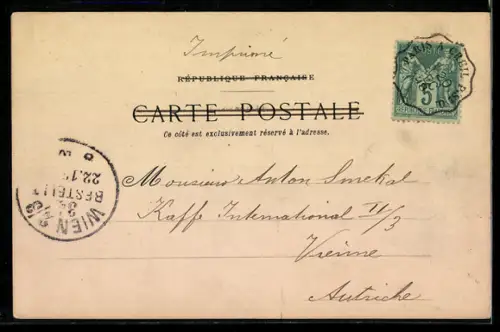 Imprimé
RÉPUBLIQUE FRANÇAISE
CARTE POSTALE
Ce côté est exclusivement réservé à l'adresse.
PARIS A
5
WIEN
BESTELLT
Monsieur Anton Smekal
Kaffe International II/3
Vienne
Autriche